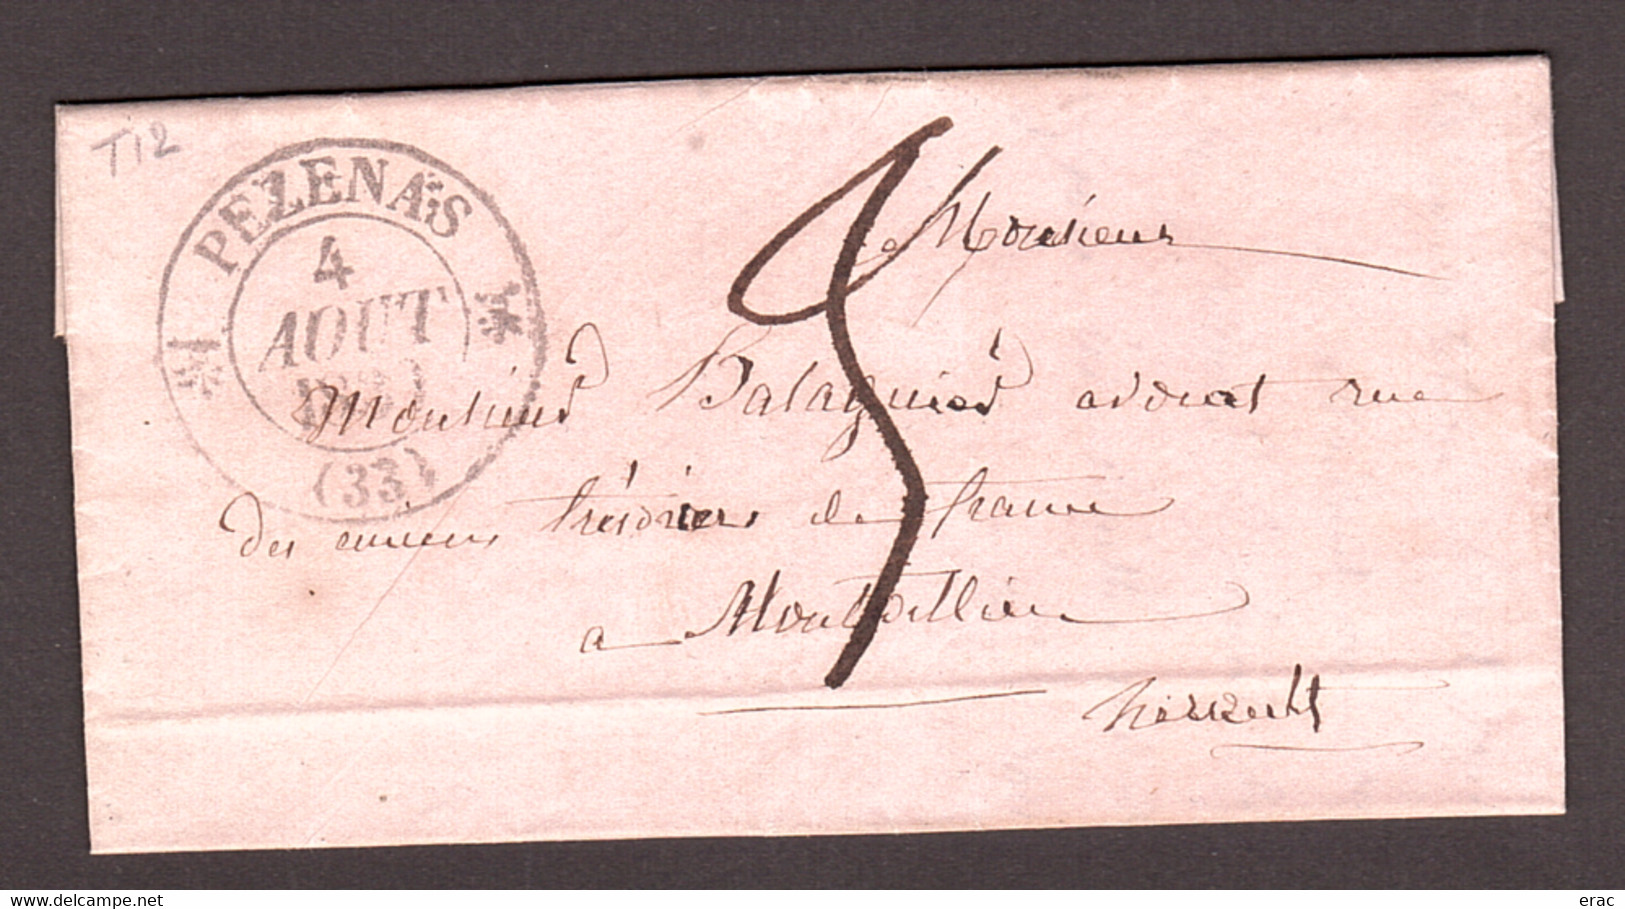 T12
PEZENAS
4
AOUT
(33)
3
Monsieur
Monsieur Balaguier avocat rue
des anciens trésoriers de france
a Montpellier
delcampe.net
erac